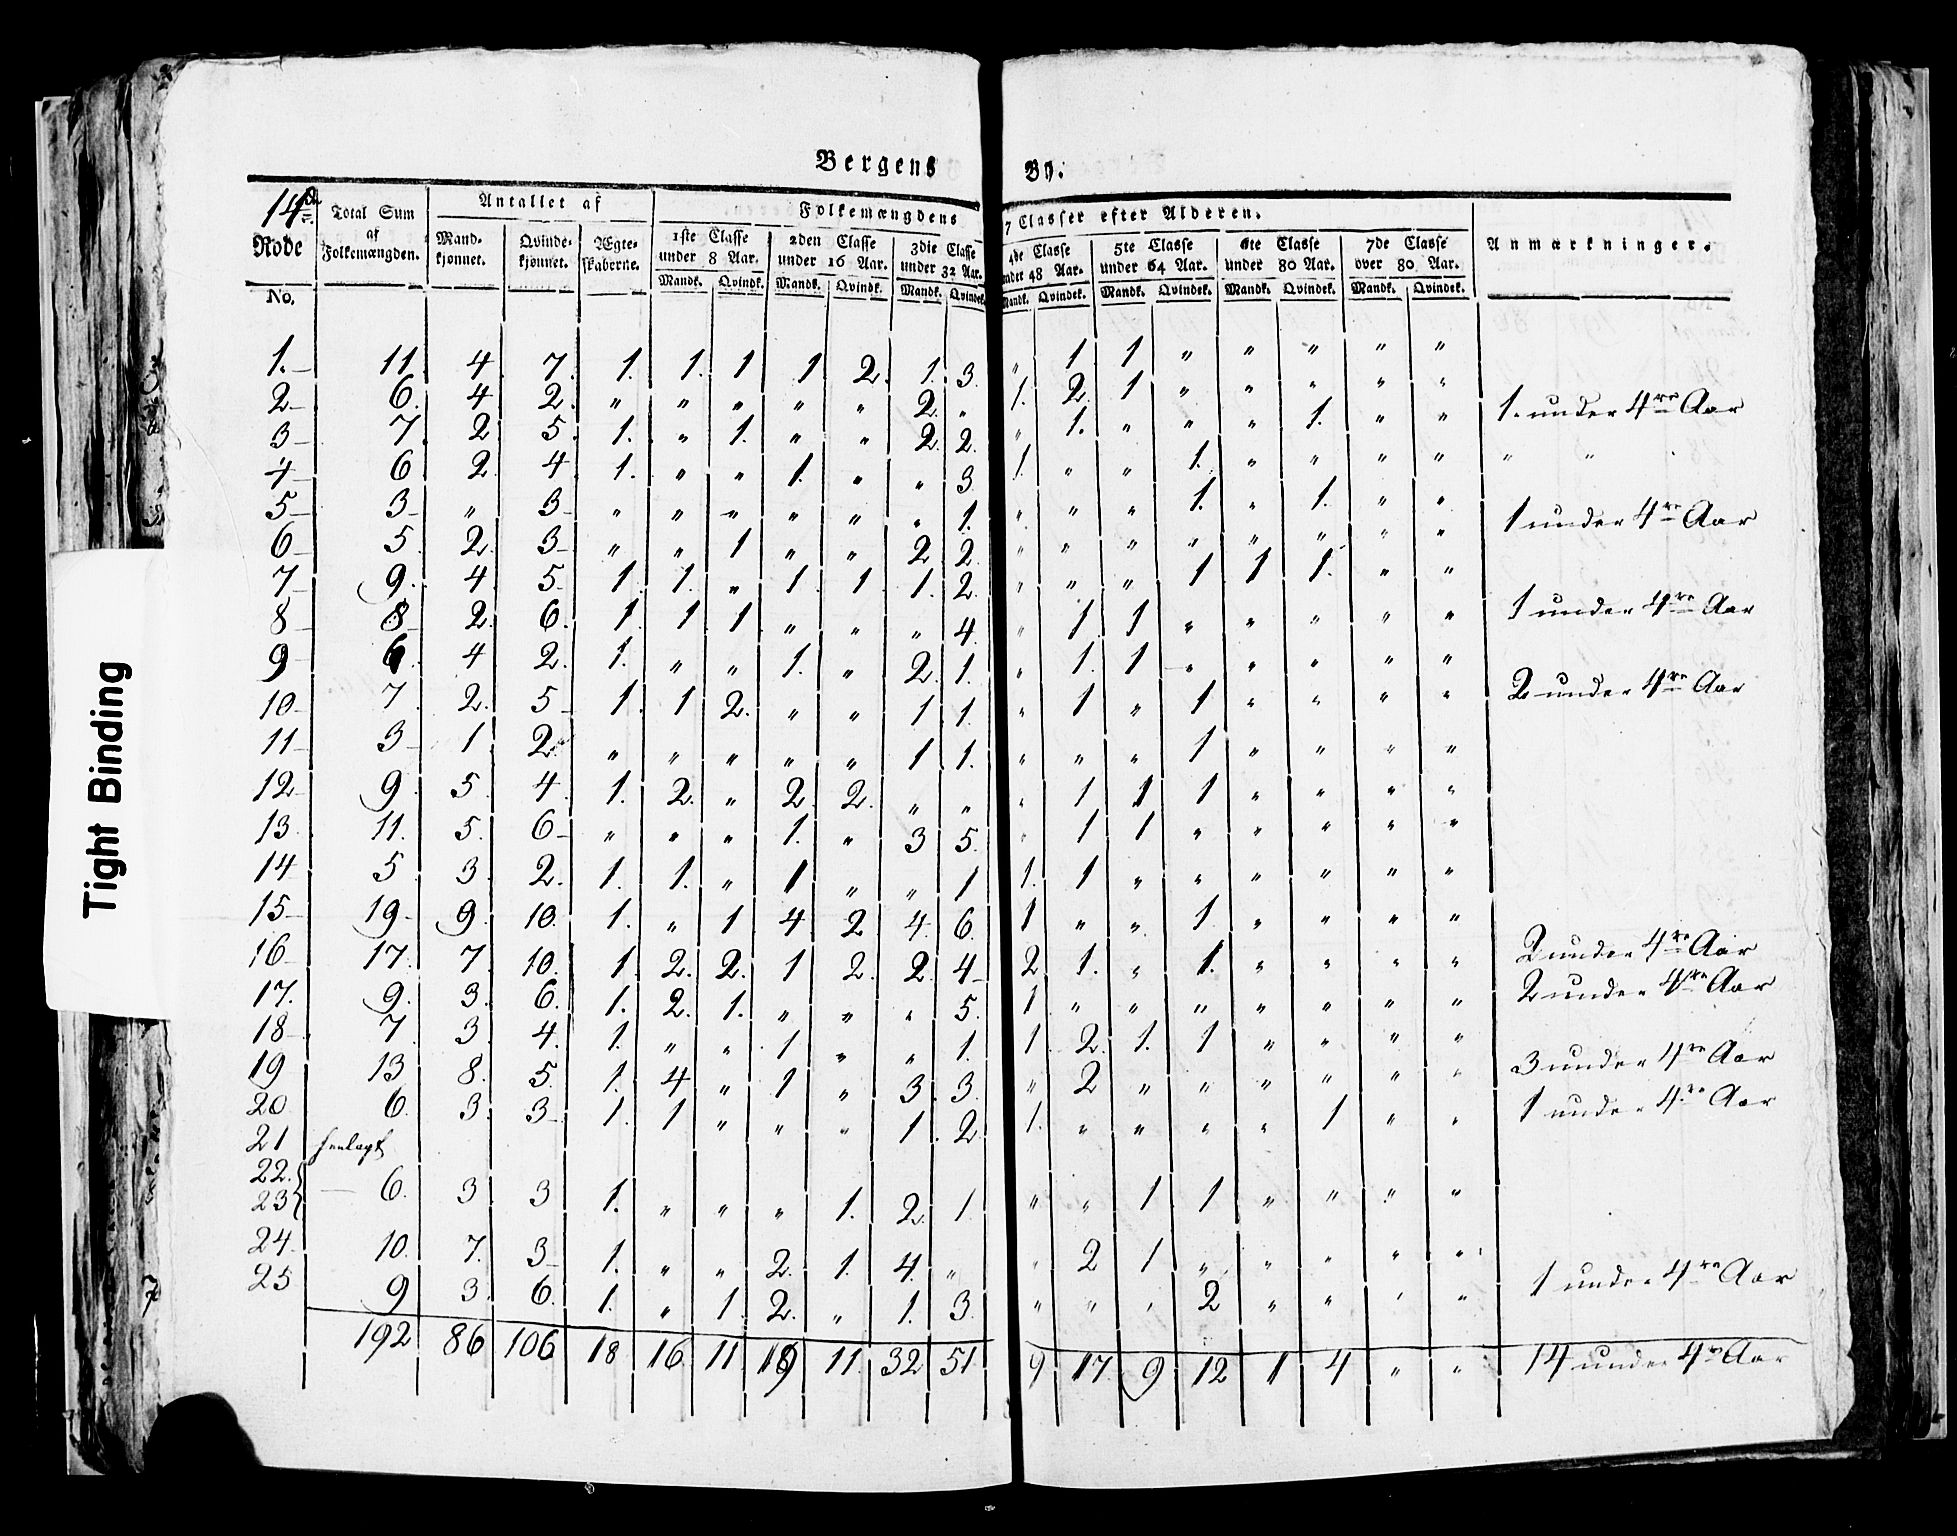 Bergens By.
14de Rode No. | Total Sum af Folkemængden. | Antallet af Mandkjønnet. | Qvindekjønnet. | Ægteskaberne. | Folkemængdens 7 Classer efter Alderen. 1ste Classe under 8 Aar. Mandk. | Qvindk. | 2den Classe under 16 Aar. Mandk. | Qvindk. | 3die Classe under 32 Aar. Mandk. | Qvindek. | 4de Classe under 48 Aar. Mandk. | Qvindek. | 5te Classe under 64 Aar. Mandk. | Qvindek. | 6te Classe under 80 Aar. Mandk. | Qvindek. | 7de Classe over 80 Aar. Mandk. | Qvindek. | Anmærkninger.
1. | 11 | 4 | 7. | 1. | 1. | 1 | 1 | 2. | 1. | 3. | " | 1 | 1 | " | " | " | " | "
2 | 6. | 4 | 2. | " | " | " | " | " | 2. | " | 1. | 2. | 1 | " | " | " | " | " | 1. under 4re Aar
3 | 7 | 2 | 5. | 1. | " | 1. | " | " | 2. | 2. | " | 1. | " | " | " | 1. | " | "
4 | 6 | 2. | 4 | 1. | " | " | 1. | " | " | 3. | 1. | " | " | 1. | " | " | " | " | " "
5 | 3 | " | 3 | " | " | " | " | " | " | 1. | " | " | " | 1. | " | 1. | " | " | 1 under 4re Aar
6 | 5. | 2. | 3 | " | " | 1 | " | " | 2 | 2. | " | " | " | " | " | " | " | "
7 | 9. | 4 | 5. | 1. | 1. | " | 1. | 1 | 1. | 2. | " | " | " | 1 | 1 | 1. | " | "
8 | 8 | 2. | 6. | 1. | 1 | 1 | " | " | " | 4. | " | 1 | 1 | " | " | " | " | " | 1 under 4re Aar
9 | 6. | 4 | 2. | 1. | " | " | 1. | " | 2. | 1. | " | 1. | 1 | " | " | " | " | "
10 | 7. | 2. | 5 | 1. | 1 | 2. | " | " | 1 | 1. | " | 1 | " | 1 | " | " | " | " | 2 under 4re Aar
11 | 3 | 1 | 2. | " | " | " | " | " | 1 | 1. | " | " | " | 1 | " | " | " | "
12 | 9. | 5. | 4. | 1. | 2. | " | 2 | 2. | " | " | " | 1 | 1 | 1 | " | " | " | "
13. | 11. | 5. | 6 | " | " | " | 1. | " | 3 | 5. | " | 1 | 1 | " | " | " | " | "
14 | 5 | 3. | 2. | 1. | 1. | " | 1 | " | " | 1 | 1. | 1 | " | " | " | " | " | "
15 | 19. | 9. | 10. | 1. | " | 1 | 4 | 2 | 4. | 6. | 1 | " | " | 1. | " | " | " | "
16 | 17. | 7. | 10. | 1. | 2. | 2. | 1 | 2. | 2. | 4 | 2 | 1. | " | 1. | " | " | " | " | 2 under 4re Aar
17. | 9. | 3. | 6. | 1. | 2. | 1. | " | " | " | 5. | 1 | " | " | " | " | " | " | " | 2 under 4re Aar
18 | 7 | 3 | 4. | 1. | " | " | 1 | " | " | 1. | 1 | 2. | 1. | 1 | " | " | " | "
19 | 13 | 8. | 5. | 1. | 4 | " | 1 | " | 3. | 3. | " | 2 | " | " | " | " | " | " | 3 under 4re Aar
20 | 6. | 3. | 3 | 1. | 1 | " | " | " | 1. | 2. | 1. | " | " | " | " | 1 | " | " | 1 under 4re Aar
21
22. 23 | 6. | 3. | 3 | 1. | " | " | " | 1. | 2. | 1 | " | " | 1 | 1 | " | " | " | "
24. | 10. | 7. | 3 | 1. | " | " | 2. | 1. | 4. | " | " | 2 | 1 | " | " | " | " | "
25 | 9 | 3. | 6. | 1. | " | 1. | 2. | " | 1. | 3. | " | " | " | 2 | " | " | " | " | 1 under 4re Aar
192 | 86 | 106 | 18 | 16 | 11 | 19 | 11. | 32 | 51 | 9 | 17. | 9 | 12 | 1 | 4 | " | " | 14 under 4re Aar
Tight Binding